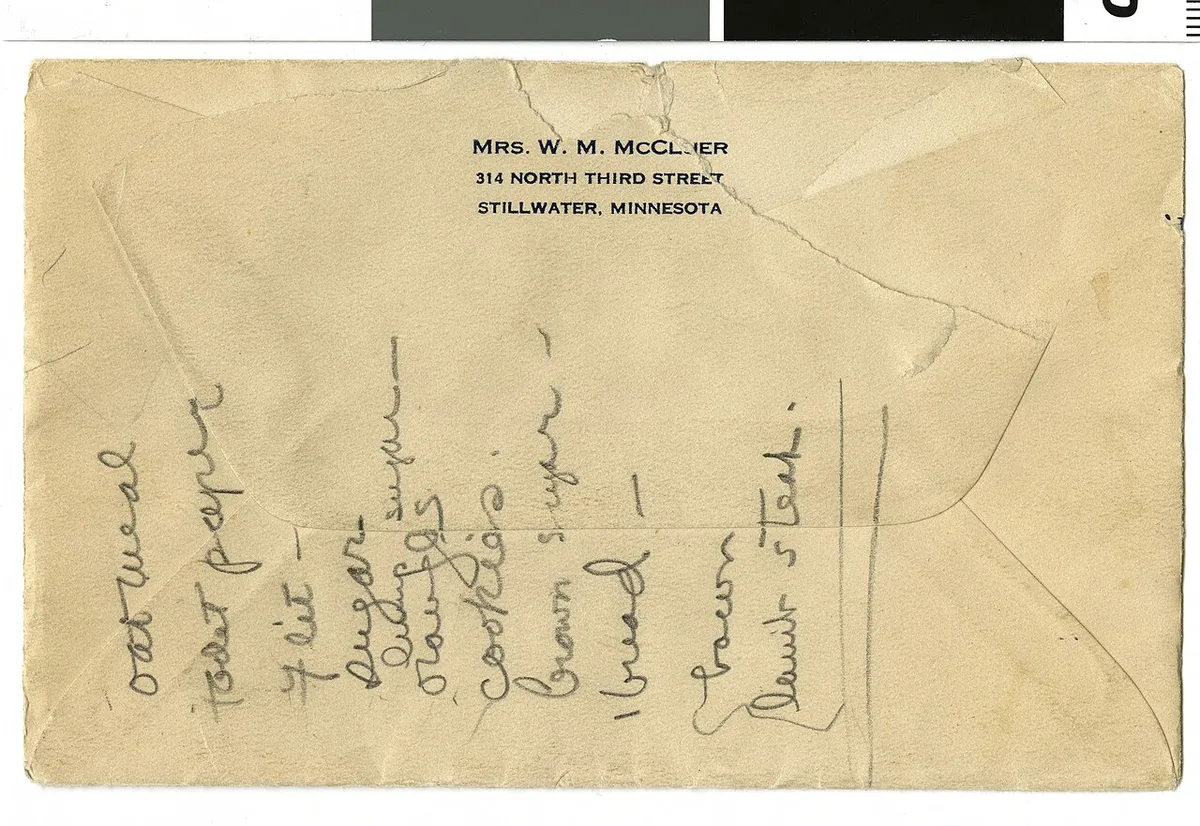 MRS. W. M. McCLUER
314 NORTH THIRD STREET
STILLWATER, MINNESOTA
oatmeal
toilet paper
Flit —
sugar
lump sugar —
oranges
cookies.
brown sugar —
1 bread —
bacon
steak.